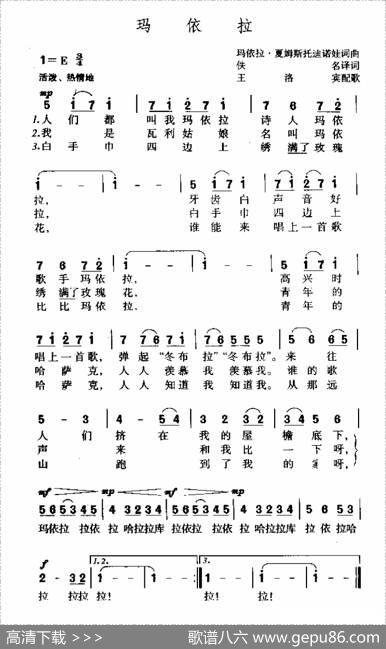 玛 依 拉
1=E 3/4
玛依拉·夏姆斯托迪诺娃词曲
佚 名译词
活泼、热情地
王 洛 宾配歌
mp
5 1 7 1 7 1 2 7 1 7 6 7 2
1.人 们 都 叫我玛依拉 诗 人 玛依
2.我 是 瓦利姑 娘 名 叫玛 依
3.白 手 巾 四 边 上 绣 满了玫瑰
1 - - 1 - - 5 1 7 1 7 1 2 7 1
拉, 牙齿白 声 音 好
拉, 白手巾 四 边 上
花, 谁能来 唱上一首歌
7 6 7 2 1 - - 1 - - 5 1 7 1
歌 手 玛 依 拉, 高 兴 时
绣 满了玫瑰 花, 青 年 的
比 比 玛依 拉, 青 年 的
唱上一首歌, 弹起 “冬布 拉”“冬布拉”。来 往
哈 萨 克, 人 人 羡慕 我 羡慕我。谁 的 歌
哈 萨 克, 人 人 知道 我 知道我。从 那 远
人 们 挤 在 我 的 屋 檐 底下,
声 来 和 我 比 一 下 呀,
山 跑 到 了 我 的 呀,
mf mp mf
玛依拉 拉依 拉 哈拉拉库 拉依拉 拉依 拉 哈拉拉库 拉 依 拉哈
f
1.2. 3.
2 - 3 2 1 - - 1 - - 1 - - 1 - -
拉 拉拉 拉! 拉! 拉! 拉!
高清下载 >>> 歌谱八六 www.gepu86.com